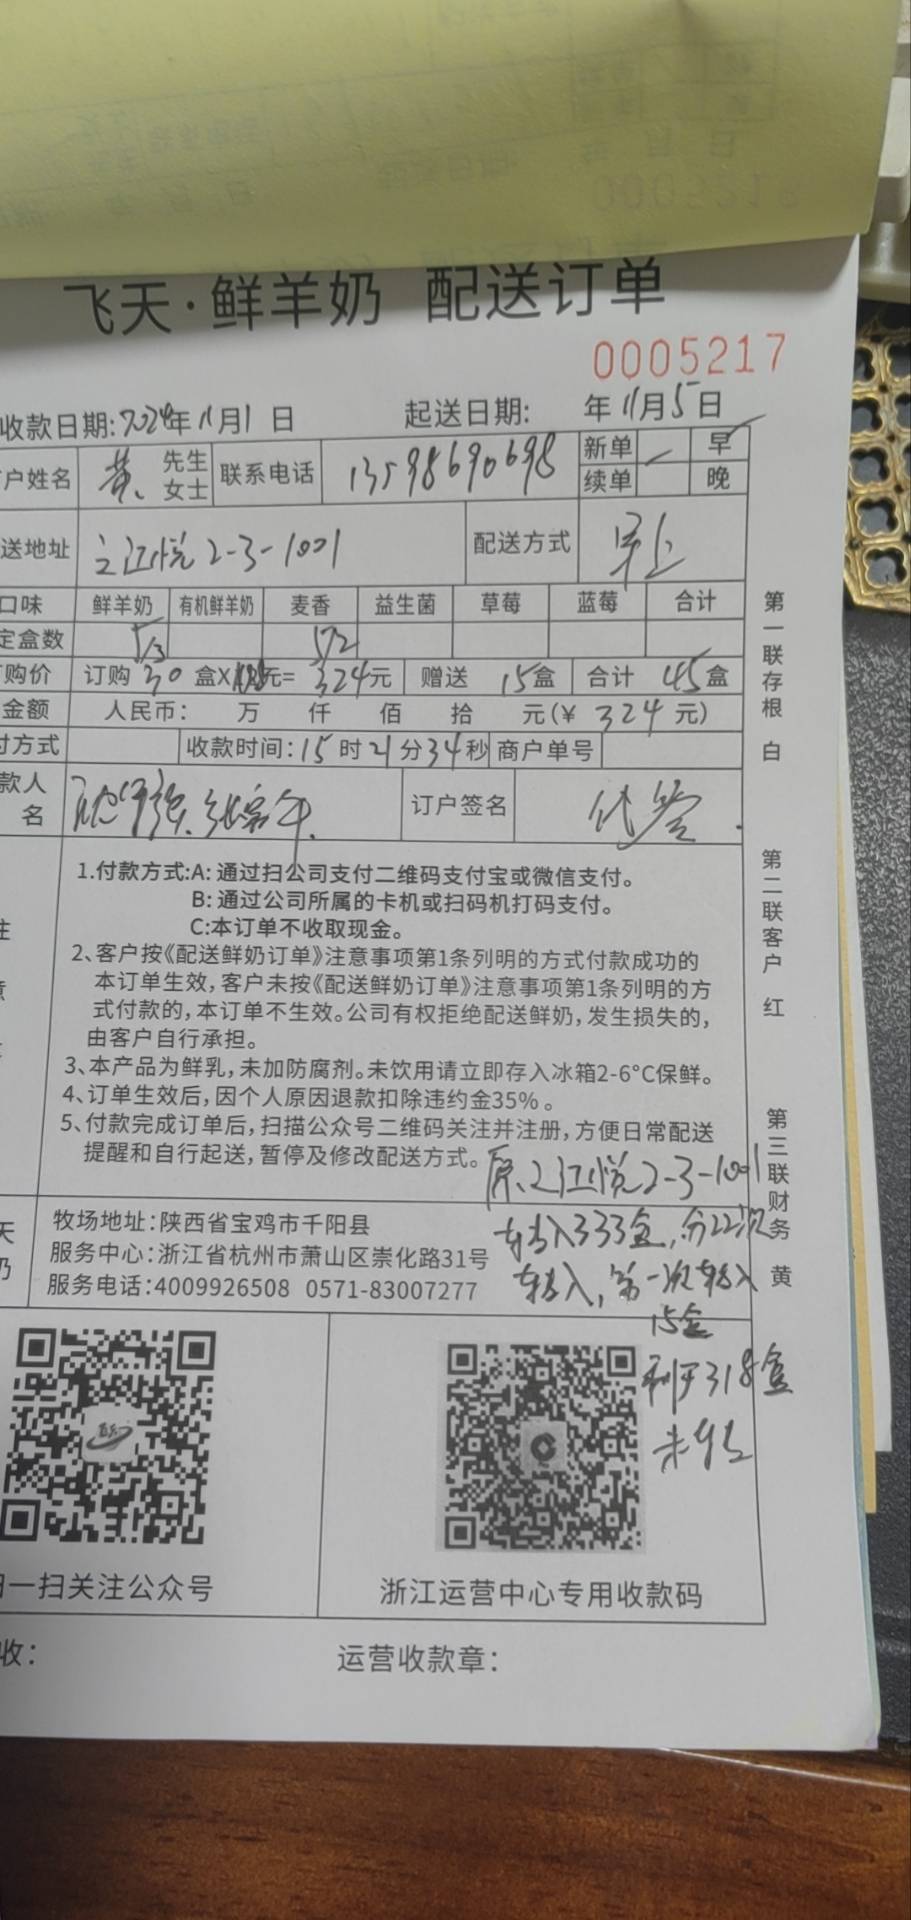 飞天·鲜羊奶 配送订单
0005217
收款日期:2024年11月1日 起送日期: 年11月5日
户姓名 黄 先生 女士 联系电话 13598690698 新单 早
续单 晚
送地址 之江悦2-3-1001 配送方式 早上
口味 鲜羊奶 有机鲜羊奶 麦香 益生菌 草莓 蓝莓 合计
定盒数 5/3 5/2
购价 订购30盒X 元=324元 赠送 15盒 合计 45盒
金额 人民币: 万 仟 佰 拾 元(¥ 324元)
付方式 收款时间:15时21分34秒 商户单号
款人
名 订户签名 代签
1.付款方式:A:通过扫公司支付二维码支付宝或微信支付。
B:通过公司所属的卡机或扫码机打码支付。
C:本订单不收取现金。
2、客户按《配送鲜奶订单》注意事项第1条列明的方式付款成功的
本订单生效,客户未按《配送鲜奶订单》注意事项第1条列明的方
式付款的,本订单不生效。公司有权拒绝配送鲜奶,发生损失的,
由客户自行承担。
3、本产品为鲜乳,未加防腐剂。未饮用请立即存入冰箱2-6°C保鲜。
4、订单生效后,因个人原因退款扣除违约金35%。
5、付款完成订单后,扫描公众号二维码关注并注册,方便日常配送
提醒和自行起送,暂停及修改配送方式。
原之江悦2-3-1001
转入333盒,分22次
转入,第一次转入
15盒
剩下318盒
未转
牧场地址:陕西省宝鸡市千阳县
服务中心:浙江省杭州市萧山区崇化路31号
服务电话:4009926508 0571-83007277
扫一扫关注公众号
浙江运营中心专用收款码
收: 运营收款章:
第一联存根 白
第二联客户 红
第三联财务 黄